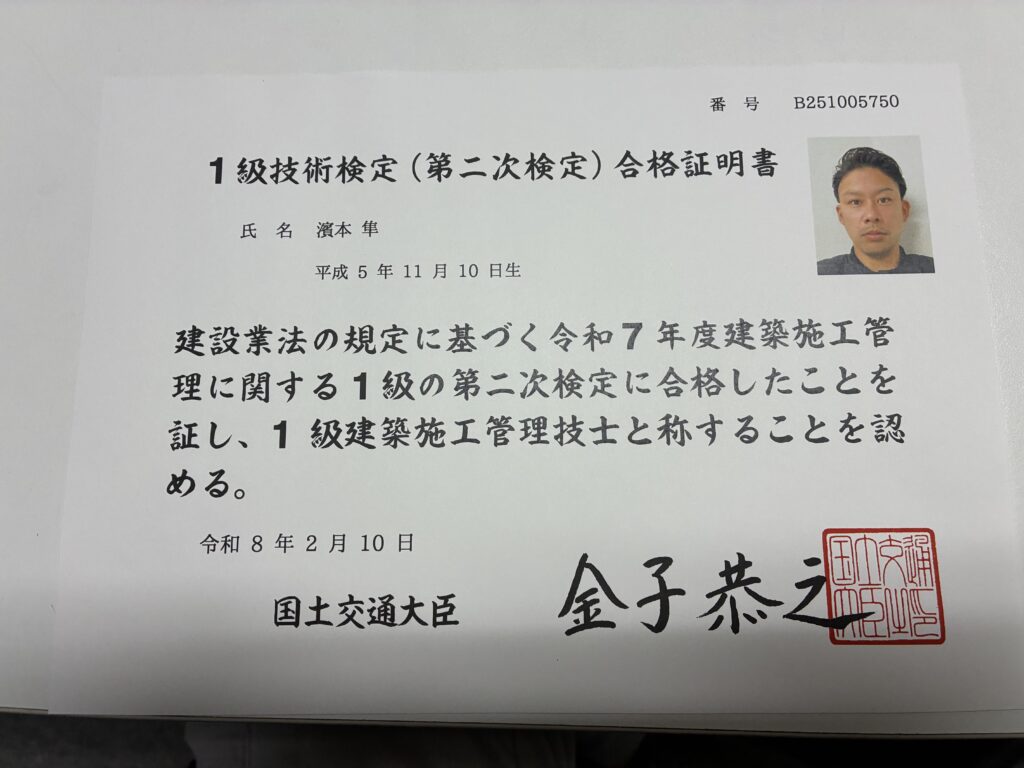 番 号 B251005750
1級技術検定(第二次検定)合格証明書
氏 名 濱本 隼
平成 5 年 11 月 10 日生
建設業法の規定に基づく令和7年度建築施工管
理に関する1級の第二次検定に合格したことを
証し、1級建築施工管理技士と称することを認
める。
令和 8 年 2 月 10 日
国土交通大臣 金子恭之